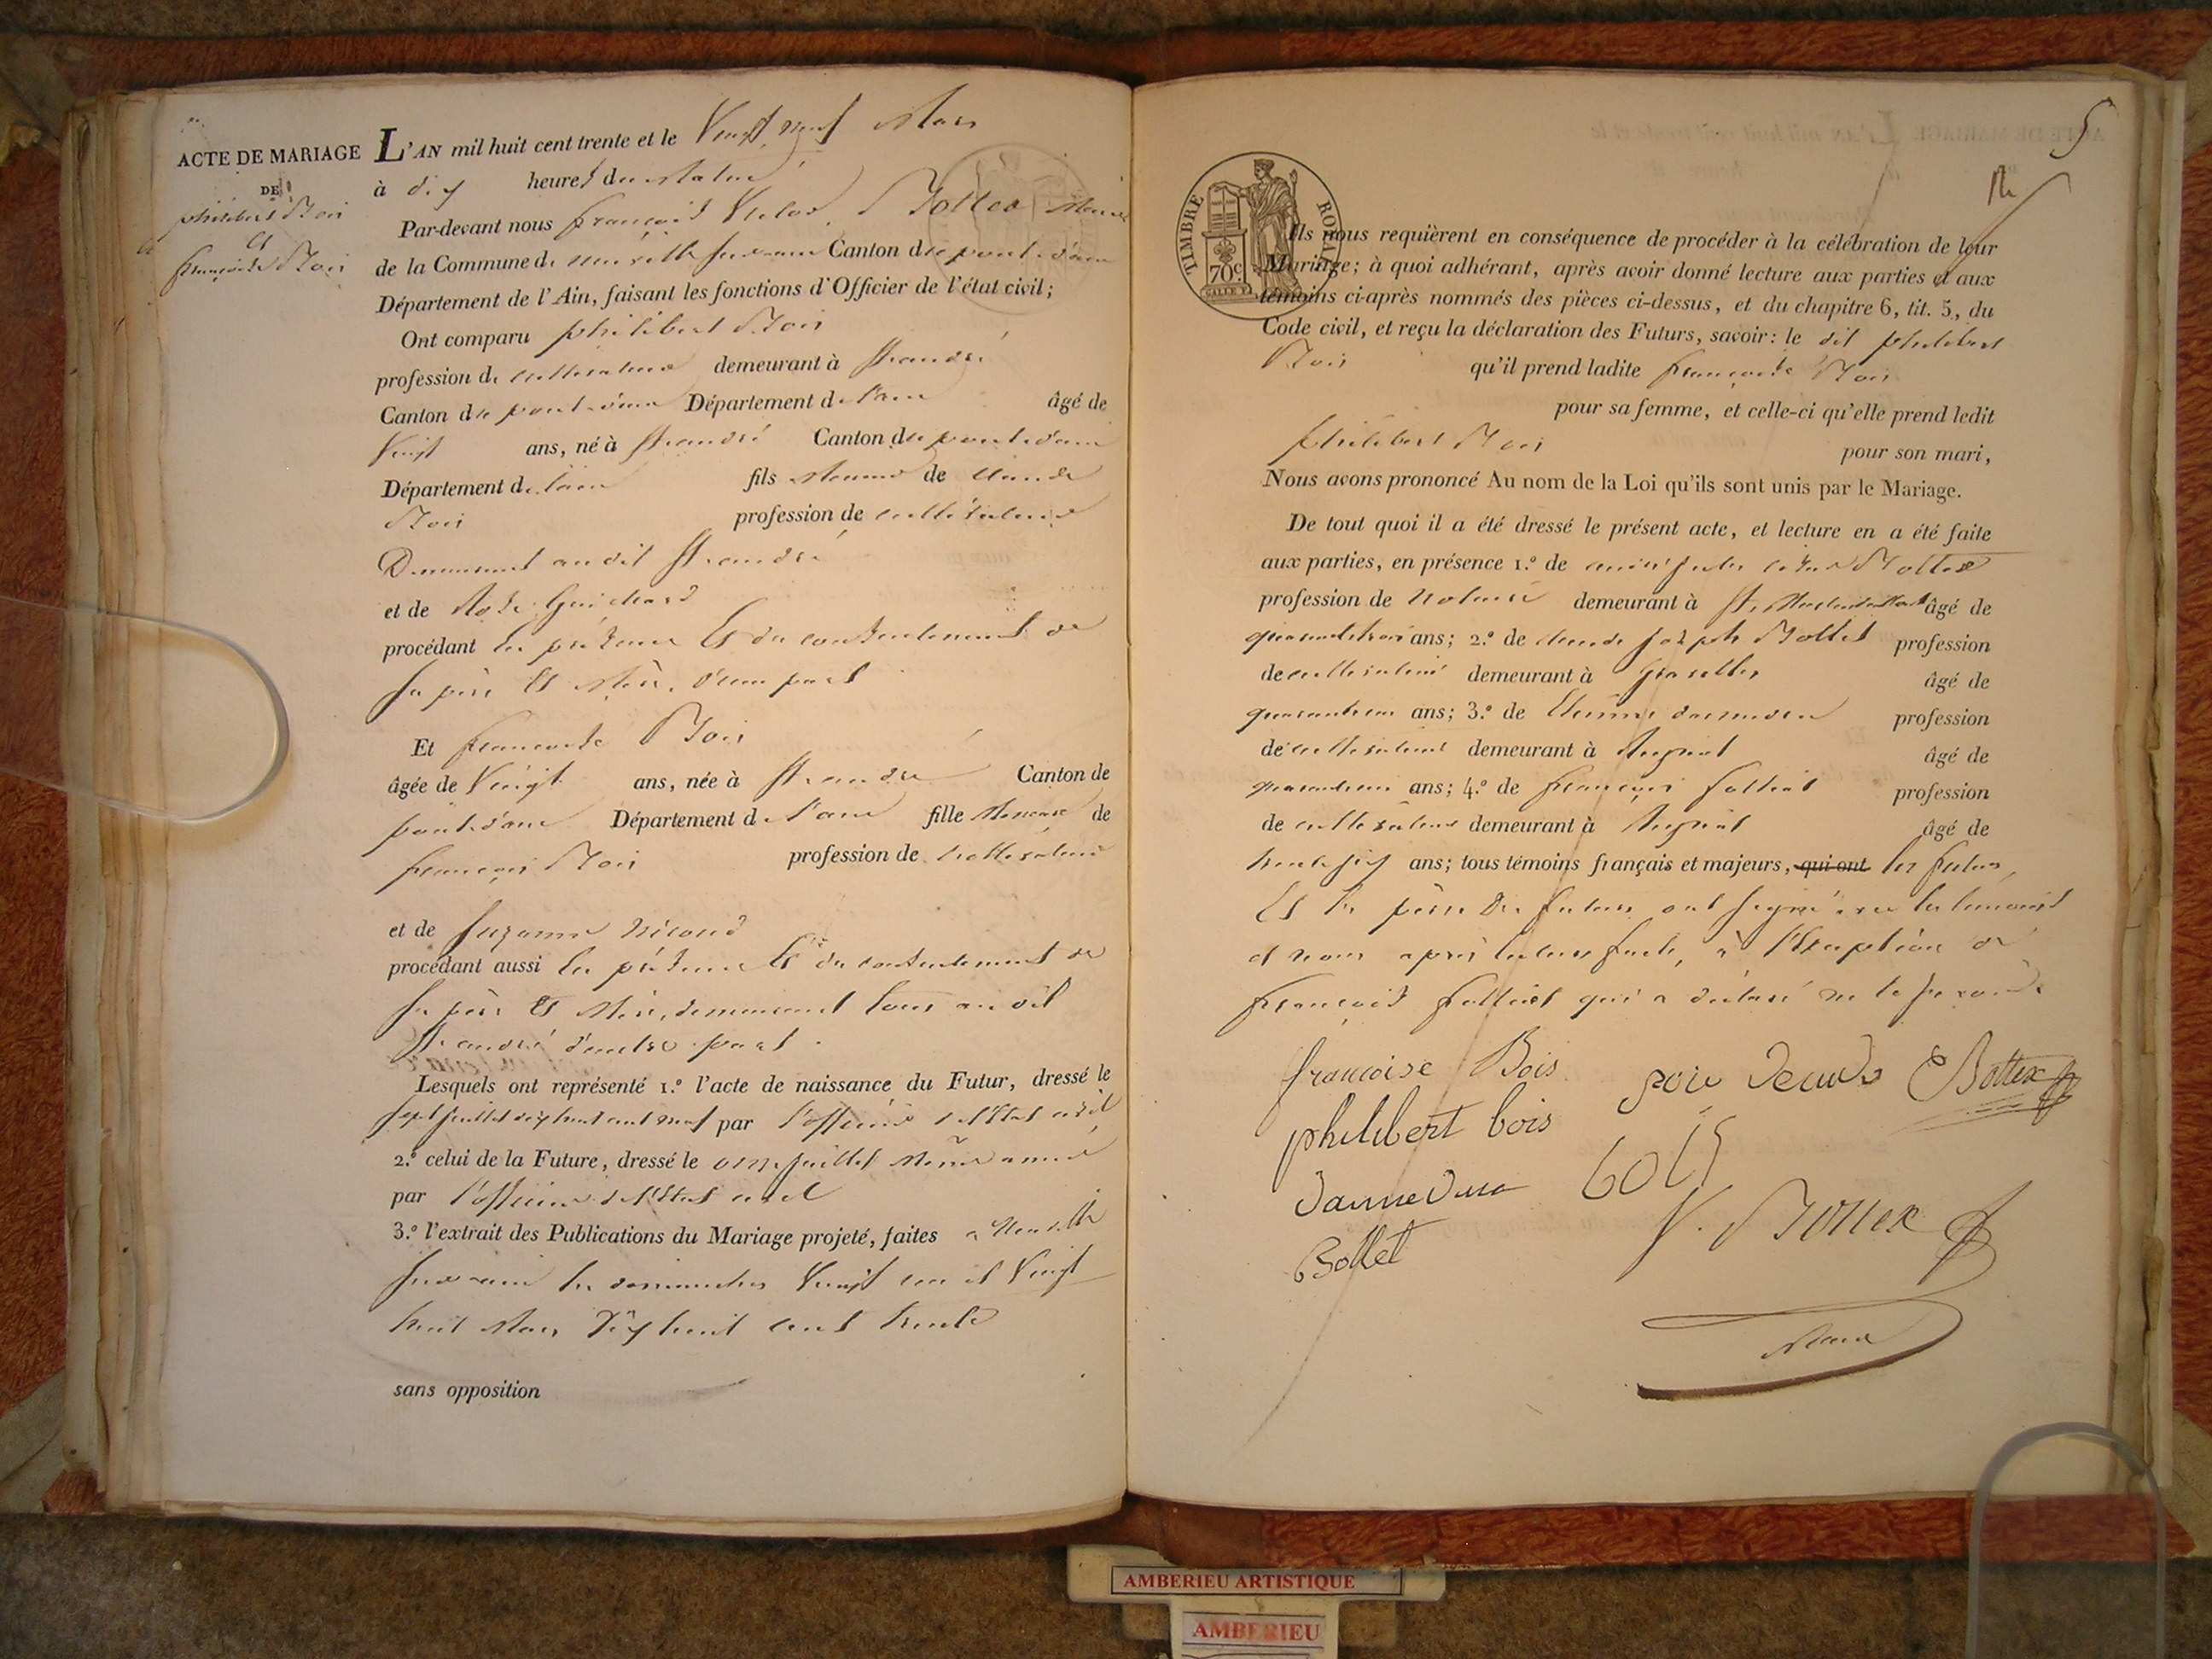 ACTE DE MARIAGE
DE
philibert Bois
et
françoise Bois
L'AN mil huit cent trente et le Vingt neuf Mars
à dix heures du Matin
Par-devant nous françois Victor Bottex Maire
de la Commune de neuville sur ain Canton de pont d'ain
Département de l'Ain, faisant les fonctions d'Officier de l'état civil;
Ont comparu philibert Bois
profession de cultivateur demeurant à St andré
Canton de pont d'ain Département de l'ain âgé de
Vingt ans, né à St andré Canton de pont d'ain
Département de l'ain fils Mineur de Claude
Bois profession de cultivateur
Demeurant au dit St andré
et de Guichard
procédant en présence Et du consentement de
ses père Et Mère, d'une part
Et francoise Bois
âgée de Vingt ans, née à St andré Canton de
pont d'ain Département de l'ain fille Mineure de
françois Bois profession de Cultivateur
et de Suzanne
procédant aussi En présence Et du consentement de
ses père Et Mère, demeurant tous au dit
St andré d'autre part.
Lesquels ont représenté 1.º l'acte de naissance du Futur, dressé le
sept juillet dix huit cent neuf par l'officier de l'Etat civil
2.º celui de la Future, dressé le onze juillet Même année
par l'officier de l'Etat civil
3.º l'extrait des Publications du Mariage projeté, faites a Neuville
sur ain les dimanches Vingt un et Vingt
huit Mars Dix huit cent trente
sans opposition
5
TIMBRE ROYAL
70c
Ils nous requièrent en conséquence de procéder à la célébration de leur
Mariage; à quoi adhérant, après avoir donné lecture aux parties et aux
témoins ci-après nommés des pièces ci-dessus, et du chapitre 6, tit. 5, du
Code civil, et reçu la déclaration des Futurs, savoir: le dit philibert
Bois qu'il prend ladite françoise Bois
pour sa femme, et celle-ci qu'elle prend ledit
philibert Bois pour son mari,
Nous avons prononcé Au nom de la Loi qu'ils sont unis par le Mariage.
De tout quoi il a été dressé le présent acte, et lecture en a été faite
aux parties, en présence 1.º de Bottex
profession de Notaire demeurant à St Martin du Mont âgé de
quarante trois ans; 2.º de claude joseph Bollet profession
de cultivateur demeurant à âgé de
quarante ans; 3.º de Etienne profession
de cultivateur demeurant à âgé de
quarante ans; 4.º de françois folliet profession
de cultivateur demeurant à âgé de
trente six ans; tous témoins français et majeurs, qui ont les futurs
Et les pères des futurs ont signé avec les temoins
et nous après lecture faite, à l'Exception de
françois folliet qui a déclaré ne le savoir
francoise Bois
philibert bois
bois
Bollet
Bottex
V. Bottex
Maire
AMBERIEU ARTISTIQUE
AMBERIEU